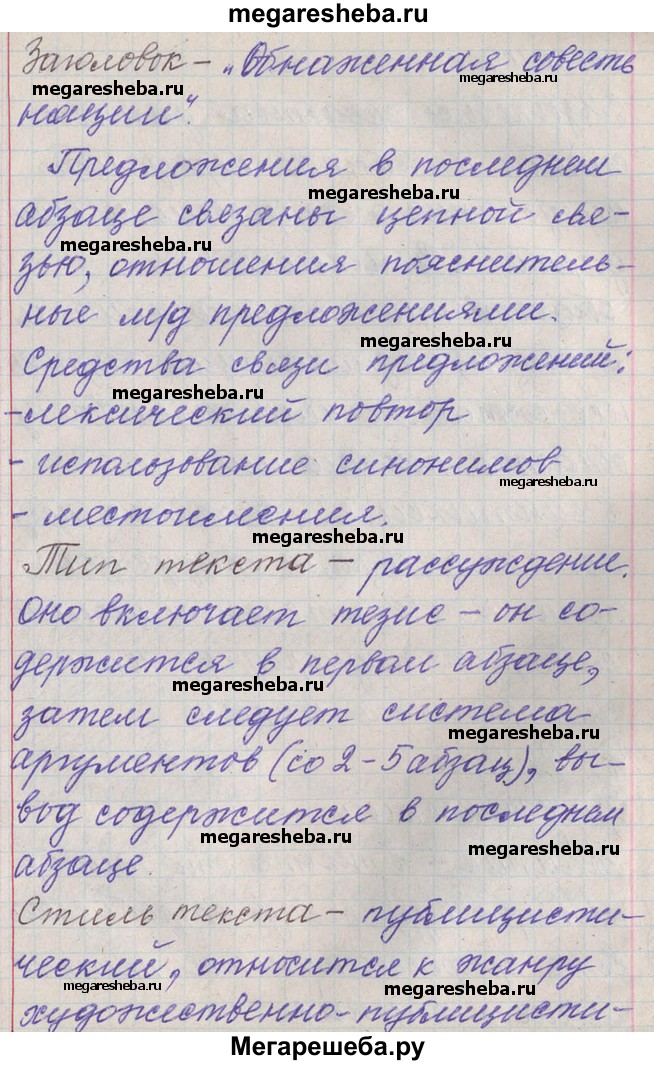 megaresheba.ru
Заголовок – „Обнаженная совесть
megaresheba.ru
megaresheba.ru
нации“.
Предложения в последнем
megaresheba.ru
абзаце связаны цепной свя-
megaresheba.ru
зью, отношения пояснитель-
ные м/д предложениями.
megaresheba.ru
Средства связи предложений:
megaresheba.ru
-лексический повтор
- использование синонимов
megaresheba.ru
- местоимения.
megaresheba.ru
Тип текста – рассуждение.
Оно включает тезис – он со-
держится в первом абзаце,
megaresheba.ru
затем следует система
megaresheba.ru
аргументов (со 2 – 5 абзац), вы-
вод содержится в последнем
megaresheba.ru
megaresheba.ru
абзаце.
Стиль текста – публицисти-
ческий, относится к жанру
megaresheba.ru
megaresheba.ru
художественно-публицисти-
Мегарешеба.ру